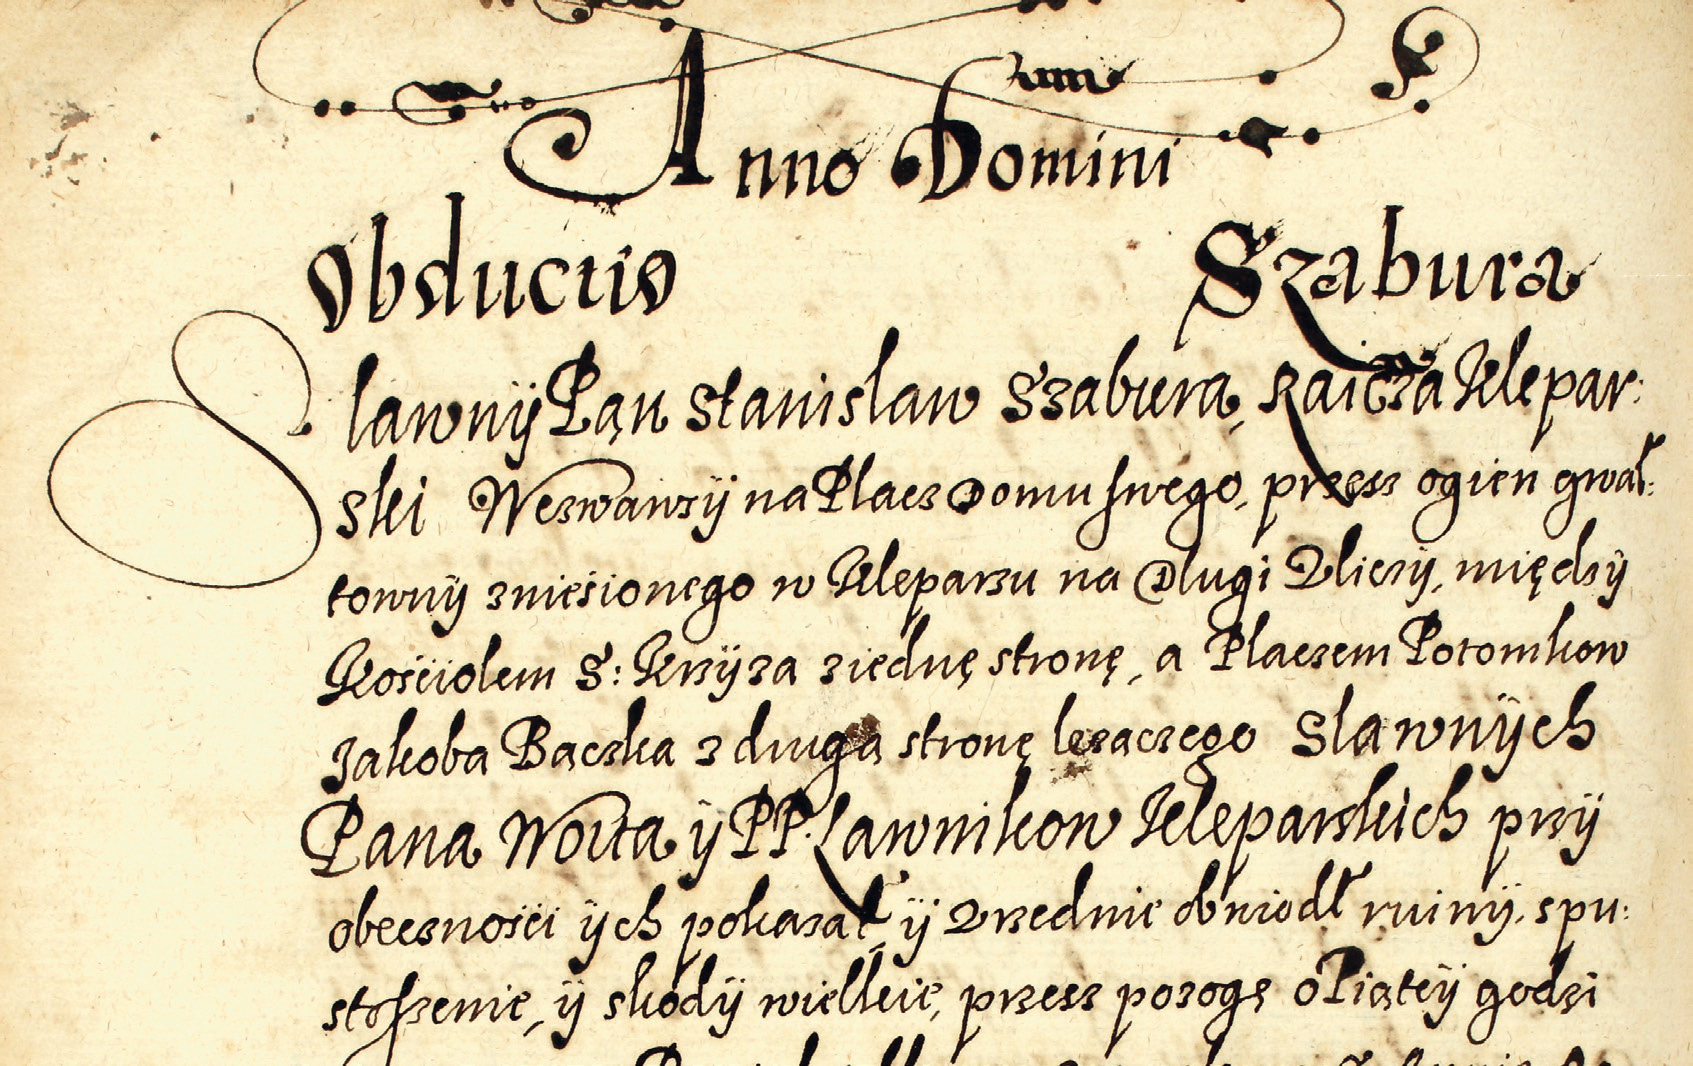 Anno Domini
Obductio Szabura
Slawnÿ Pąn Stanislaw Szabura, Raicza Klepar:
ski Wezwawszÿ na Placz Domu swego, przesz ogien gwał:
townÿ zniesionego w Kleparzu na Dlugi Vliczÿ, międzÿ
Kosciolem S: Krzÿza ziednę stronę, a Placzem Potomkow
Jakoba Bączka z drugą stronę lezaczego Slawnÿch
Pana Woita ÿ PP. Lawnikow Kleparskich przÿ
obecznosci ÿch pokazał, ÿ Vrzednie obwiodł ruinÿ, spu:
stoszenie, ÿ skodÿ wielkie, przesz pozogę o Piątÿ godzi